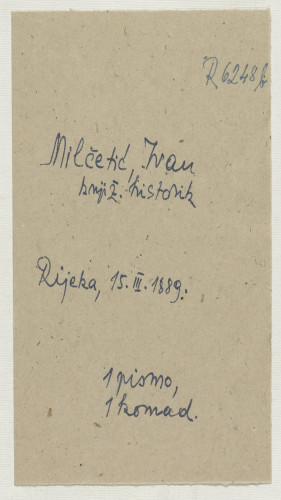 R 6248 b
Milčetić, Ivan
knjiž. historik
Rijeka, 15. III. 1889.
1 pismo,
1 komad.